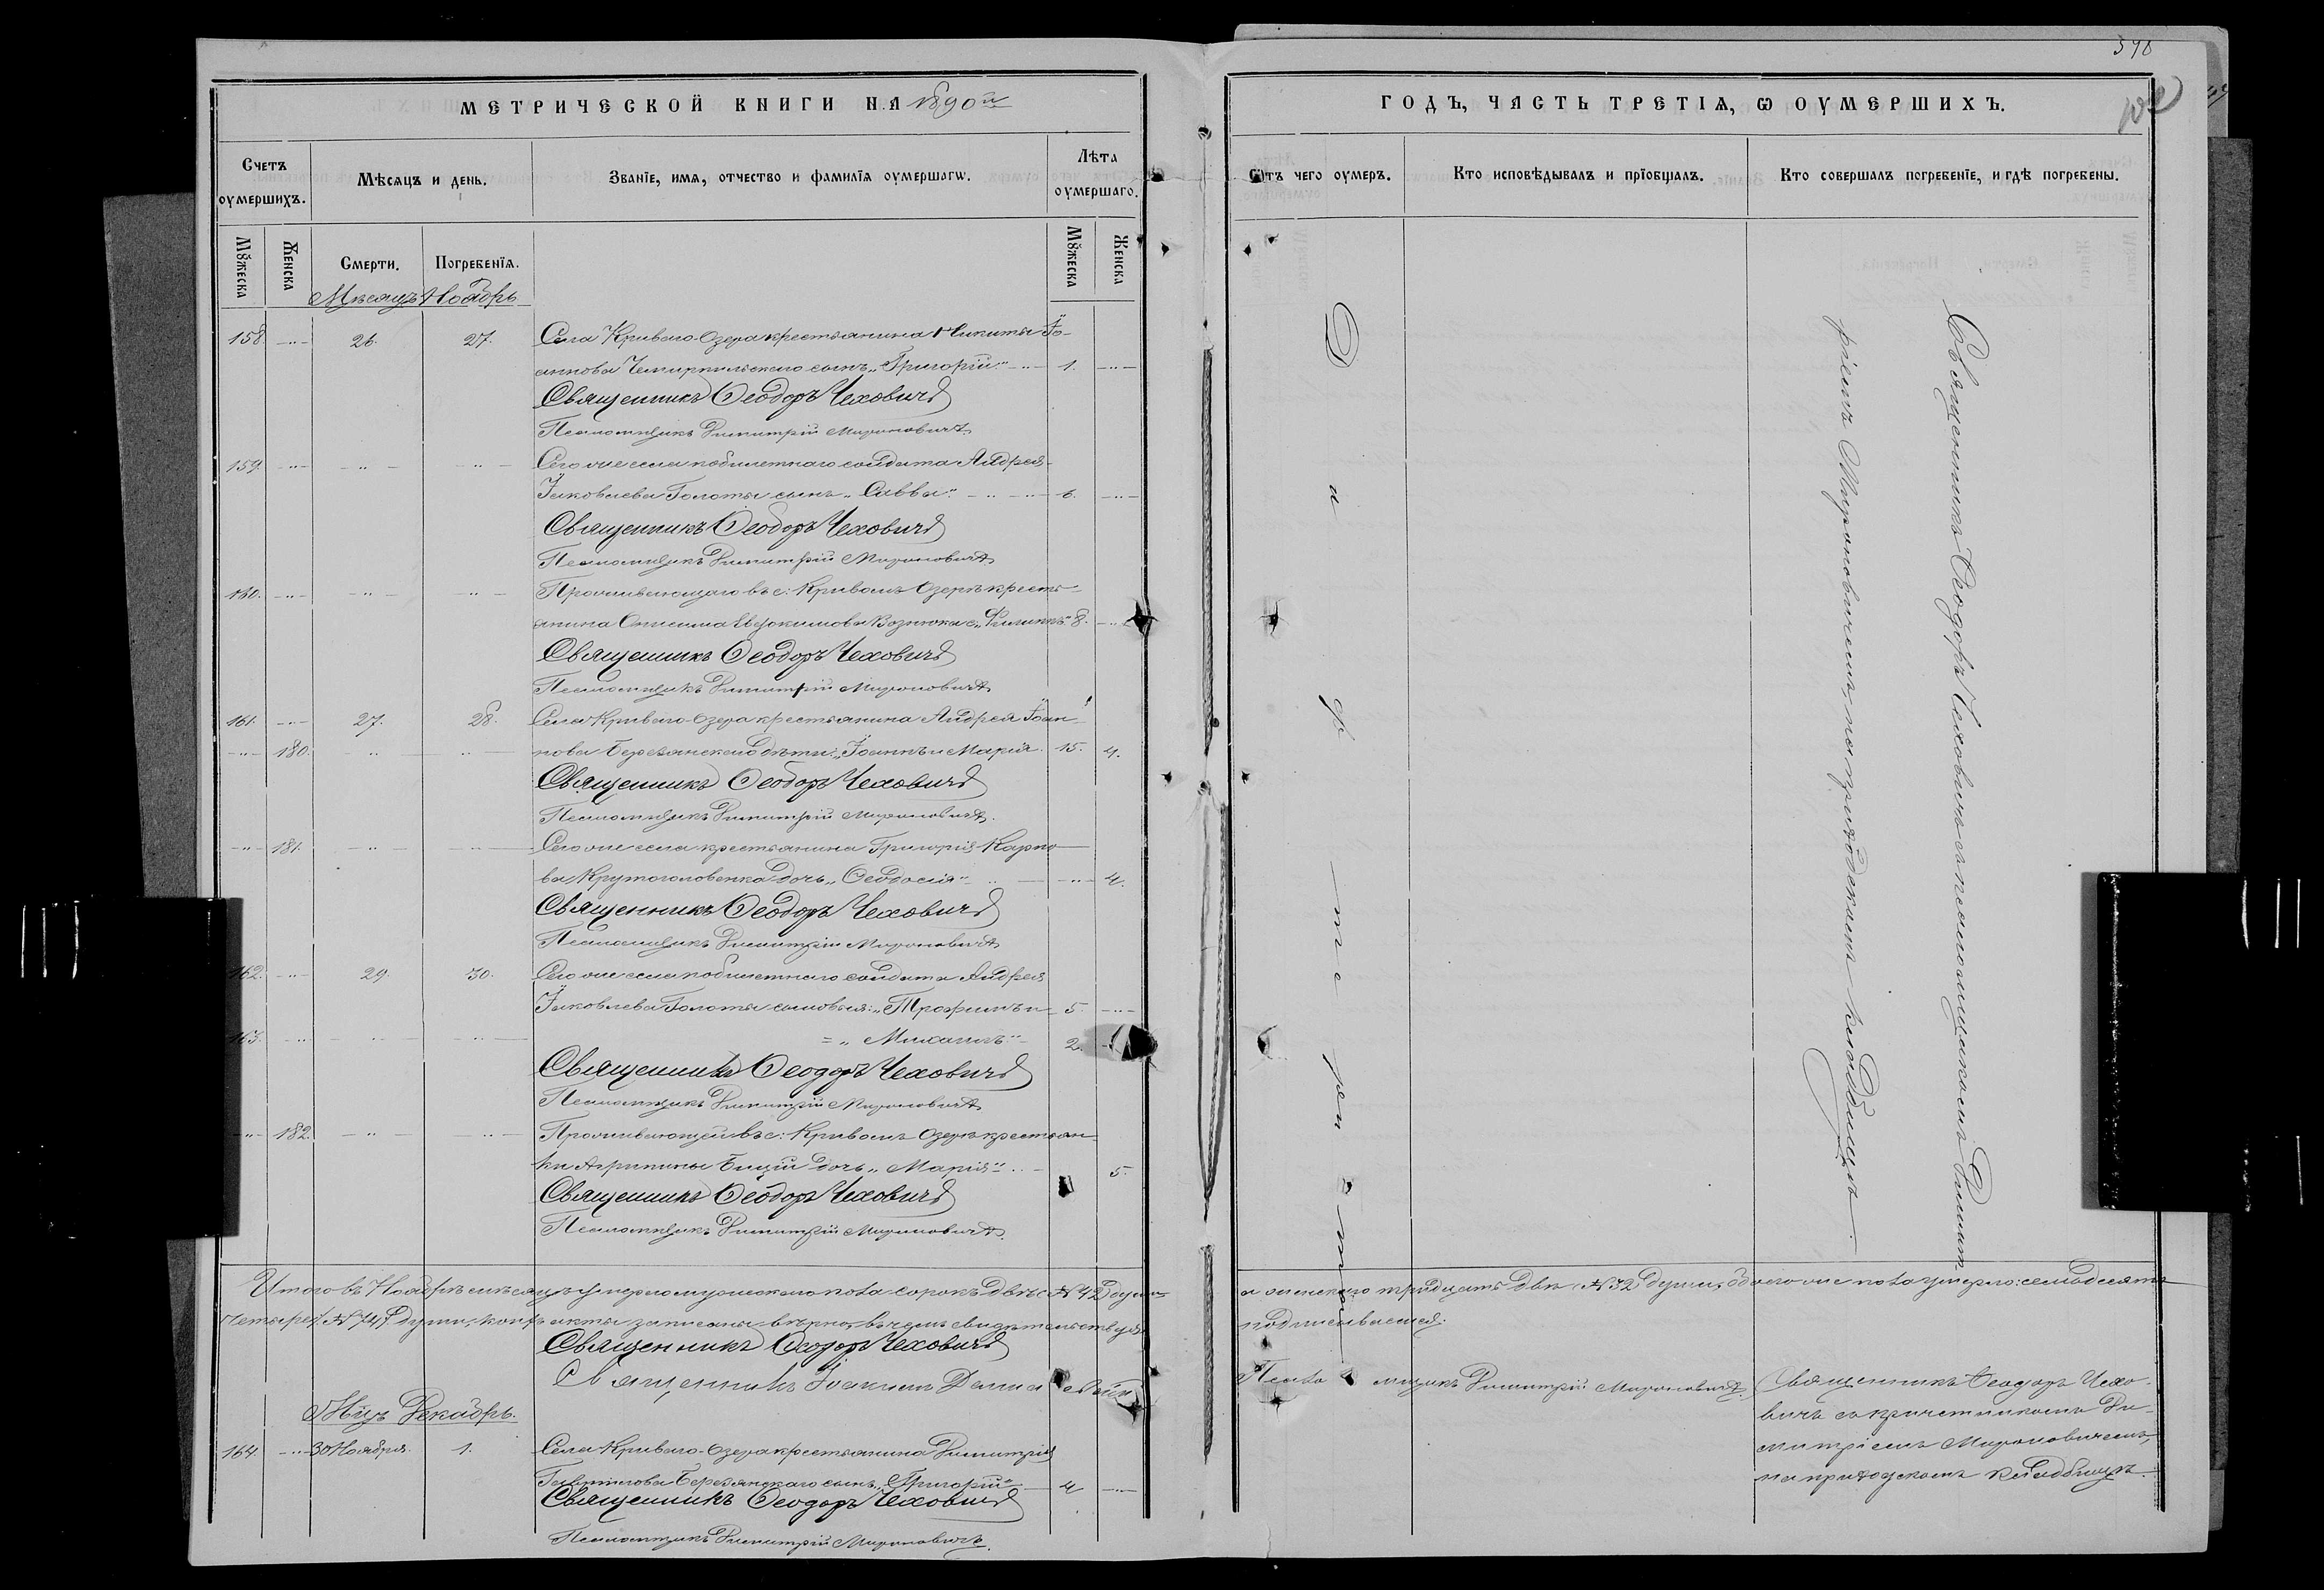 398
МЕТРИЧЕСКОЙ КНИГИ НА 1890й
ГОДЪ, ЧАСТЬ ТРЕТІѦ, Ѡ ОУМЕРШИХЪ.
Счетъ оумершихъ.
Мѣсяцъ и день.
Званїе, имѧ, отчество и фамилїѧ оумершагѡ.
Лѣта оумершаго.
Ѿтъ чего оумеръ.
Кто исповѣдывалъ и прїобщалъ.
Кто совершалъ погребенїе, и гдѣ погребены.
Мꙋжеска
Женска
Смерти.
Погребенїѧ.
Мꙋжеска
Женска
Мѣсяцъ Ноябрь
158. -"- 26. 27. Села Криваго-Озера крестьянина Никиты Іо-
аннова Чемиртльскаго сынъ „Григорій" -"- 1. -"-
Священникъ Ѳеодоръ Чеховичъ
Псаломщикъ Димитрій Мироновичъ
159. -"- -"- -"- Сего же села побилетнаго солдата Андрея
Іаковлева Голоты сынъ „Савва" -"- 6. -"-
Священникъ Ѳеодоръ Чеховичъ
Псаломщикъ Димитрій Мироновичъ
160. -"- -"- -"- Проживающаго въ с: Кривомъ Озерѣ кресть-
янина Онисима Евдокимова Вознюка с. „Филиппъ" 8. -"-
Священникъ Ѳеодоръ Чеховичъ
Псаломщикъ Димитрій Мироновичъ
161. -"- 27. 28. Села Криваго-Озера крестьянина Андрея Іоан-
-"- 180. -"- -"- нова Березанскаго дѣти: „Іоаннъ и Марія 15. 4.
Священникъ Ѳеодоръ Чеховичъ
Псаломщикъ Димитрій Мироновичъ.
-"- 181. -"- -"- Сего же села крестьянина Григорія Карпо-
ва Крутоголовенка дочь „Ѳеодосія" -"- 4.
Священникъ Ѳеодоръ Чеховичъ
Псаломщикъ Димитрій Мироновичъ
162. -"- 29. 30. Сего же села побилетнаго солдата Андрея
Іаковлева Голоты сыновья: „Трофимъ и 5. -"-
163. -"- -"- -"- = „Михаилъ" - 2.
Священникъ Ѳеодоръ Чеховичъ
Псаломщикъ Димитрій Мироновичъ
-"- 182. -"- -"- Проживающей въ с: Кривомъ Озерѣ крестьян-
ки Агрипины дочь „Марія" 5.
Священникъ Ѳеодоръ Чеховичъ
Псаломщикъ Димитрій Мироновичъ.
Дифтеритъ
Священникъ Ѳеодоръ Чеховичъ съ псаломщикомъ Димит-
ріемъ Мироновичемъ, на приходскомъ кладбищѣ.
Итого въ Ноябрѣ мѣсяцѣ умерло мужескаго пола сорокъ двѣ № 42 души
а женскаго тридцать двѣ № 32 души, обоего же пола умерло: семьдесятъ
четыре № 74 души, коихъ акты записаны вѣрно, въ чемъ свидѣтельствуя
подписываемся:
Священникъ Ѳеодоръ Чеховичъ
Священникъ Іоакимъ
Псаломщикъ Димитрій Мироновичъ.
Мѣсяцъ Декабрь.
164. -"- 30 Ноября. 1. Села Криваго-Озера крестьянина Димитрія
Березанскаго сынъ „Григорій" 4 -"-
Священникъ Ѳеодоръ Чеховичъ
Псаломщикъ Димитрій Мироновичъ.
Священникъ Ѳеодоръ Чехо-
вичъ съ причетникомъ Ди-
митріемъ Мироновичемъ,
на приходскомъ кладбищѣ.